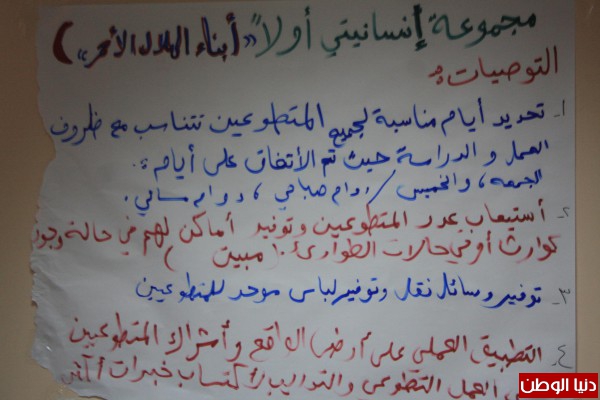 مجموعة إنسانيتي أولاً "(أبناء الهلال الأحمر)"
التوصيات :
١- تحديد أيام مناسبة لجميع المتطوعين تتناسب مع ظروف
العمل والدراسة حيث تم الأتفاق على أيام :
الجمعه ، والخميس / دوام صباحي ، دوام مسائي .
٢- أستيعاب عدد المتطوعين وتوفير أماكن لهم في حالة وجود
كوارث أو في حالات الطوارئ . ( مبيت )
٣- توفير وسائل نقل وتوفير لباس موحد للمتطوعيين
٤- التطبيق العملي على أرض الواقع وأشراك المتطوعيين
في العمل التطوعي والتدريب لأكتساب خبرات
دنيا الوطن